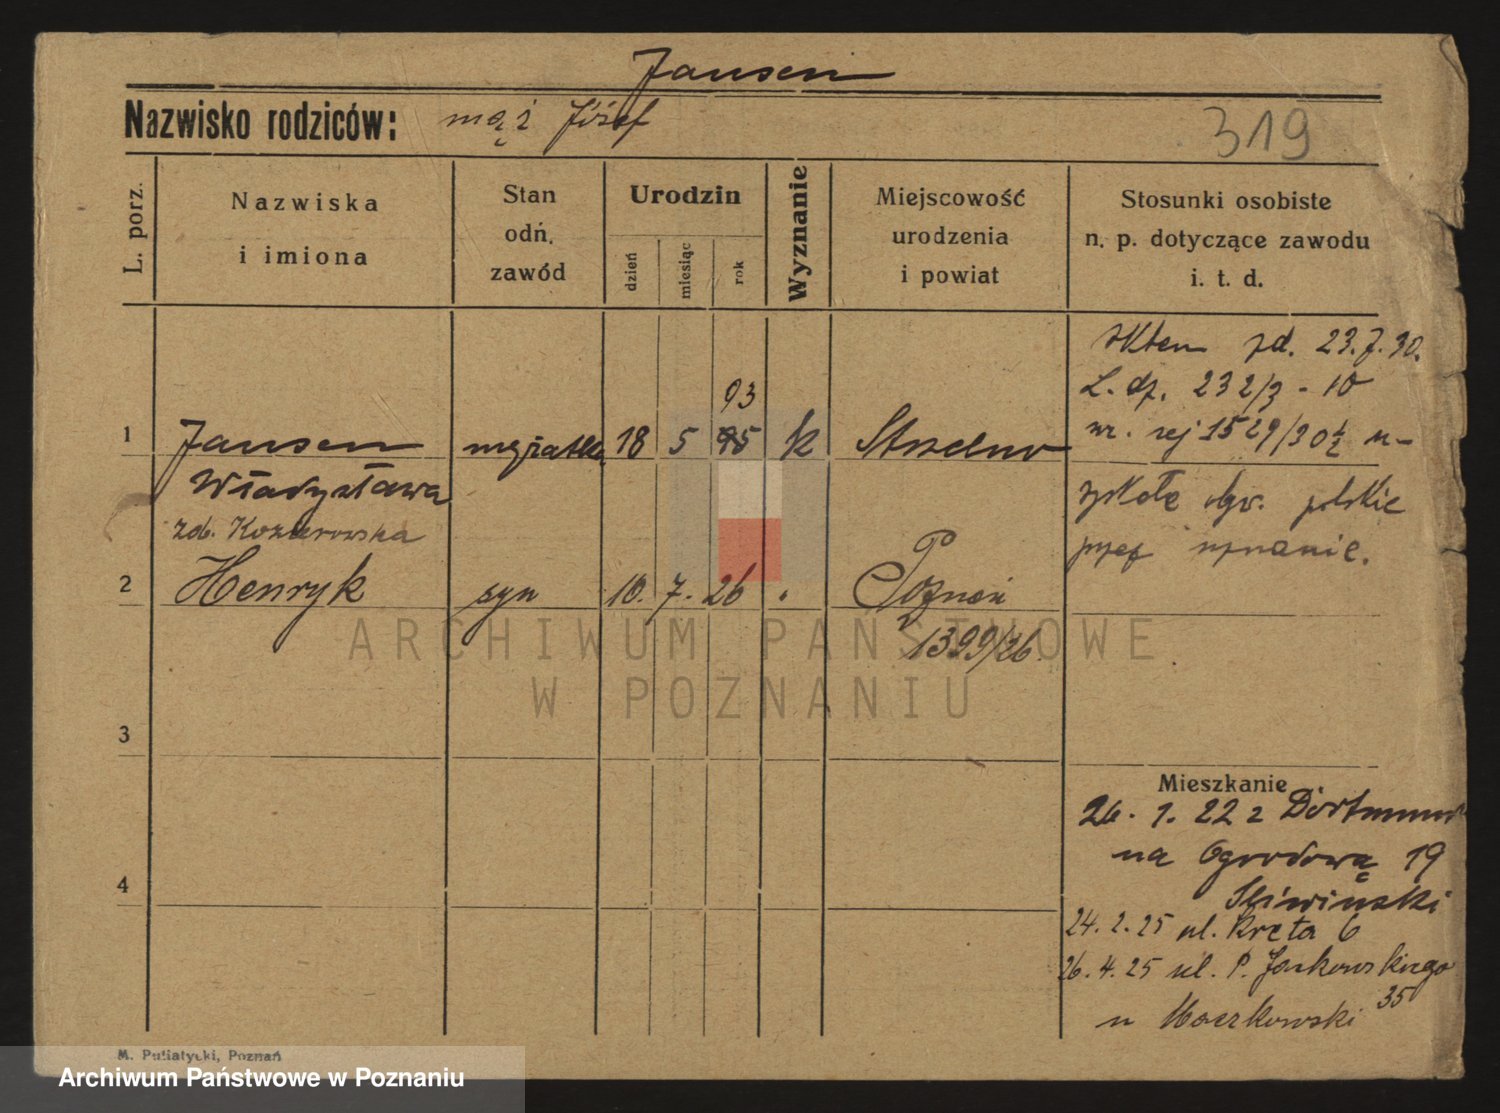 Jansen
Nazwisko rodziców: mąż Józef
319
L. porz.
Nazwiska
i imiona
Stan
odń.
zawód
Urodzin
dzień
miesiąc
rok
Wyznanie
Miejscowość
urodzenia
i powiat
Stosunki osobiste
n. p. dotyczące zawodu
i. t. d.
pd. 23.7.30.
L. dz. 232/3 - 10
nr. rej 1529/30
polskie
93
1 Jansen mężatka 18 5 95 k Strzelno
Władysława
zd. Kozierowska
2 Henryk syn 10. 7. 26 Poznań
1399/26
ARCHIWUM PAŃSTWOWE
W POZNANIU
3
4
Mieszkanie
26. 1. 22 z Dortmund
na Ogrodową 19
Śliwiński
24. 2. 25 ul. Kręta 6
26. 4. 25 ul. P. Jackowskiego
35
u Maczkowski
M. Puliatycki, Poznań
Archiwum Państwowe w Poznaniu